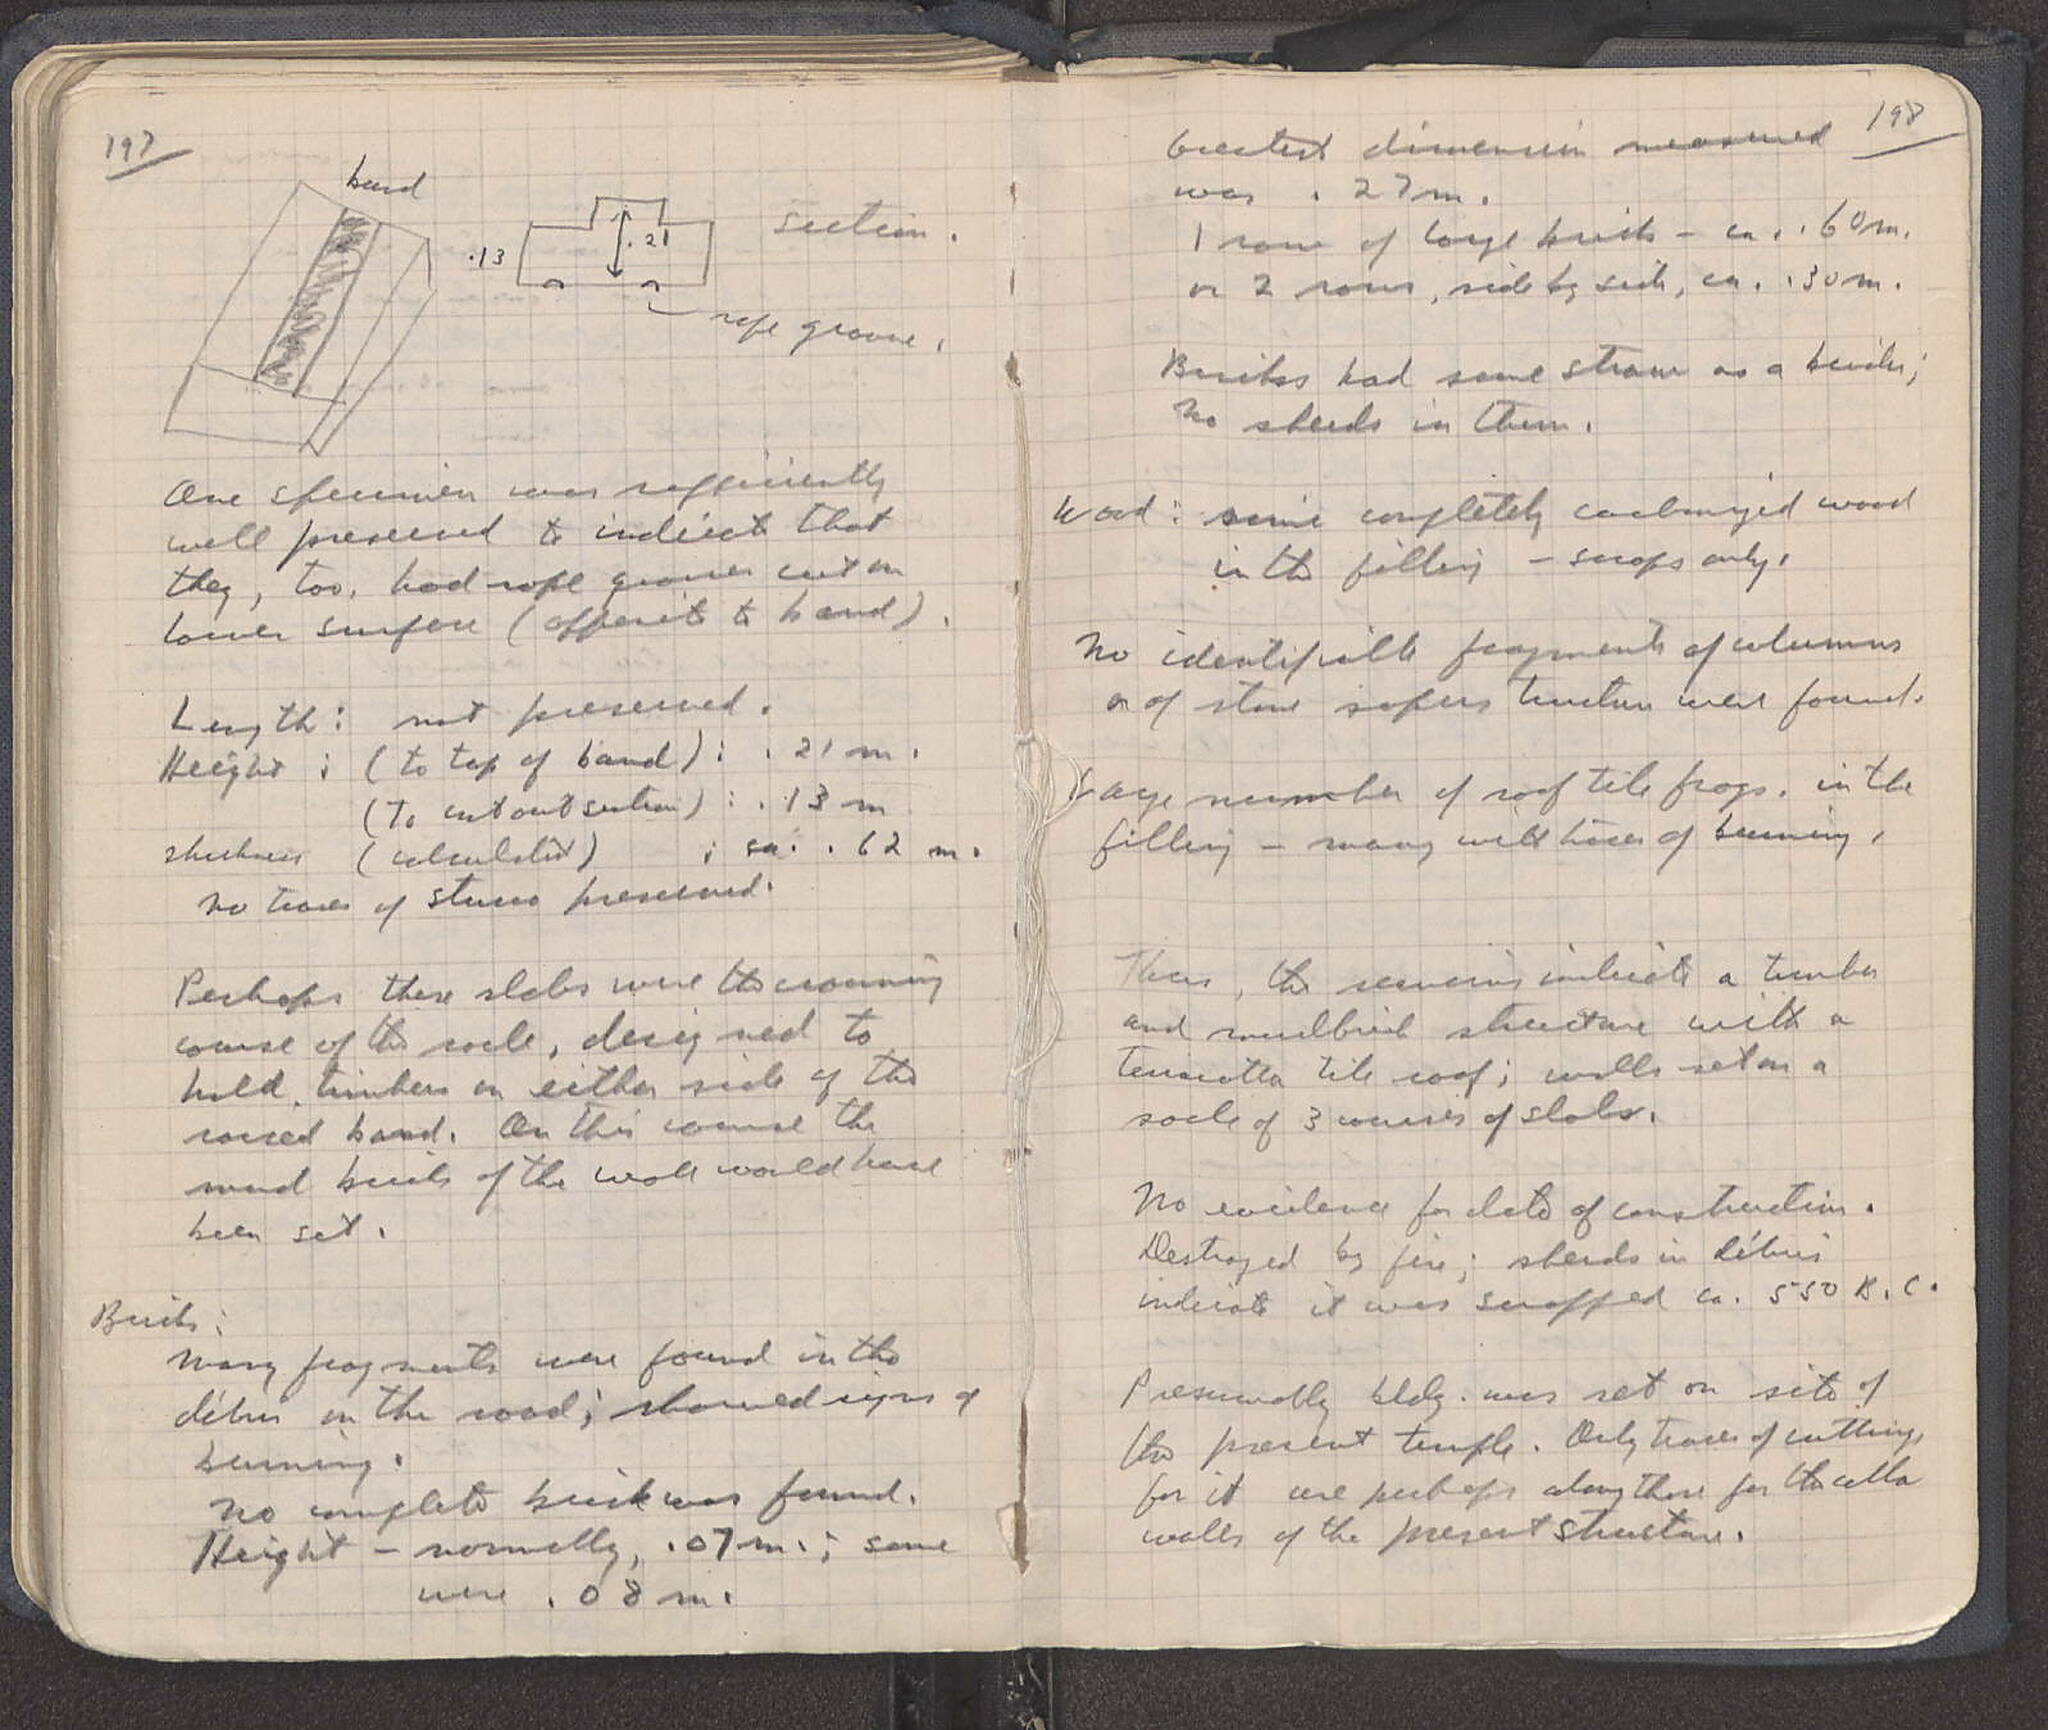 197
band
.13
.21
section.
rope groove.
One specimen was sufficiently
well preserved to indicate that
they, too, had rope grooves cut on
lower surface (opposite to band).
Length: not preserved.
Height: (to top of band): .21 m.
(to cut out section): .13 m
thickness (calculated) : ca. .62 m.
No traces of stucco preserved.
Perhaps these slabs were the crowning
course of the socle, designed to
hold timbers on either side of the
raised band. On this course the
mud bricks of the wall would have
been set.
Bricks:
Many fragments were found in the
débris on the road; showed signs of
burning.
No complete brick was found.
Height - normally, .07 m.; some
were .08 m.
198
Greatest dimension measured
was .27 m.
1 row of large bricks - ca. .60 m.
or 2 rows, side by side, ca. .30 m.
Bricks had some straw as a binder;
no sherds in them.
Wood: some completely carbonized wood
in the filling - scraps only.
No identifiable fragments of columns
or of stone superstructure were found.
Large number of roof tile frags. in the
filling - many with traces of burning.
Thus, the remains indicate a timber
and mudbrick structure with a
terracotta tile roof; walls set on a
socle of 3 courses of slabs.
No evidence for date of construction.
Destroyed by fire; sherds in débris
indicate it was scrapped ca. 550 B.C.
Presumably bldg. was set on site of
the present temple. Only traces of cuttings
for it are perhaps along those for the cella
walls of the present structure.